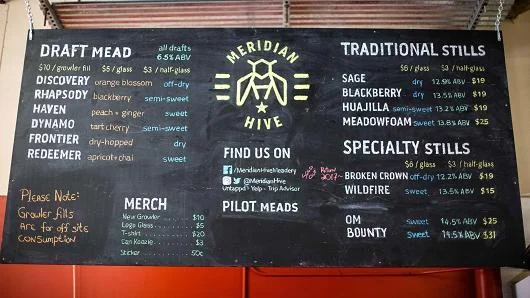 DRAFT MEAD
all drafts
6.5% ABV
$10 / growler fill $5 / glass $3 / half-glass
DISCOVERY orange blossom off-dry
RHAPSODY blackberry semi-sweet
HAVEN peach + ginger sweet
DYNAMO tart cherry semi-sweet
FRONTIER dry-hopped dry
REDEEMER apricot + chai sweet
Please Note:
Growler fills
are for off site
consumption
MERCH
New Growler $10
Logo Glass $5
T-shirt $20
Can Koozie $3
Sticker 50¢
MERIDIAN
HIVE
FIND US ON
/MeridianHiveMeadery
@MeridianHive
Untappd - Yelp - Trip Advisor
PILOT MEADS
TRADITIONAL STILLS
$6 / glass $3 / half-glass
SAGE dry 12.9% ABV $19
BLACKBERRY dry 13.5% ABV $19
HUAJILLA semi-sweet 13.2% ABV $19
MEADOWFOAM sweet 13.8% ABV $25
SPECIALTY STILLS
$6 / glass $3 / half-glass
BROKEN CROWN off-dry 12.2% ABV $19
WILDFIRE sweet 13.5% ABV $15
OM sweet 14.5% ABV $25
BOUNTY sweet 14.5% ABV $31